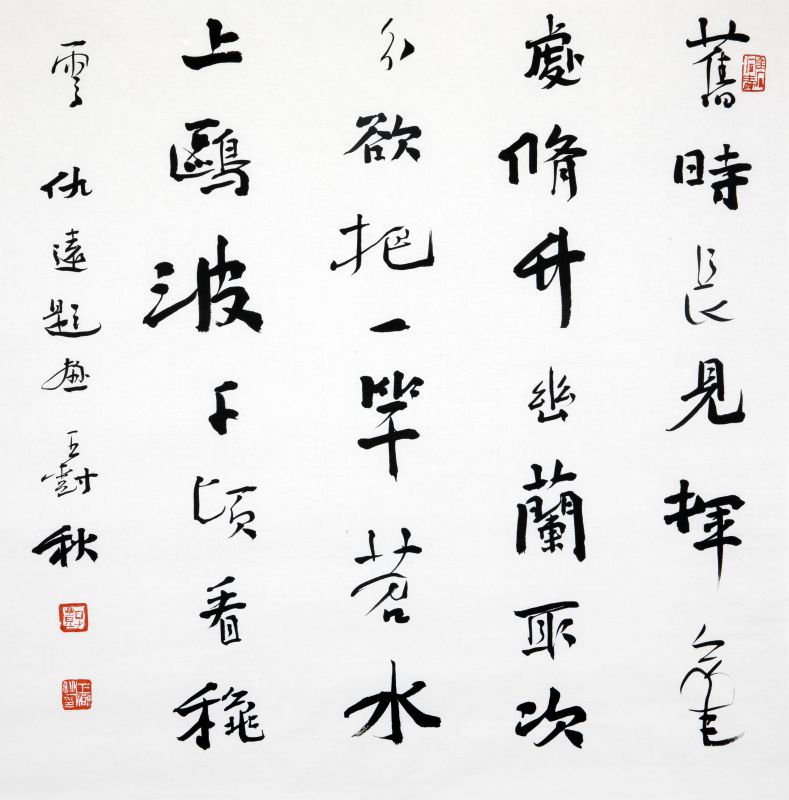 舊時長見揮毫
處脩竹幽蘭取次
分欲把一竿苕水
上鷗波千頃看穐
雲 仇遠題畫 王 秋